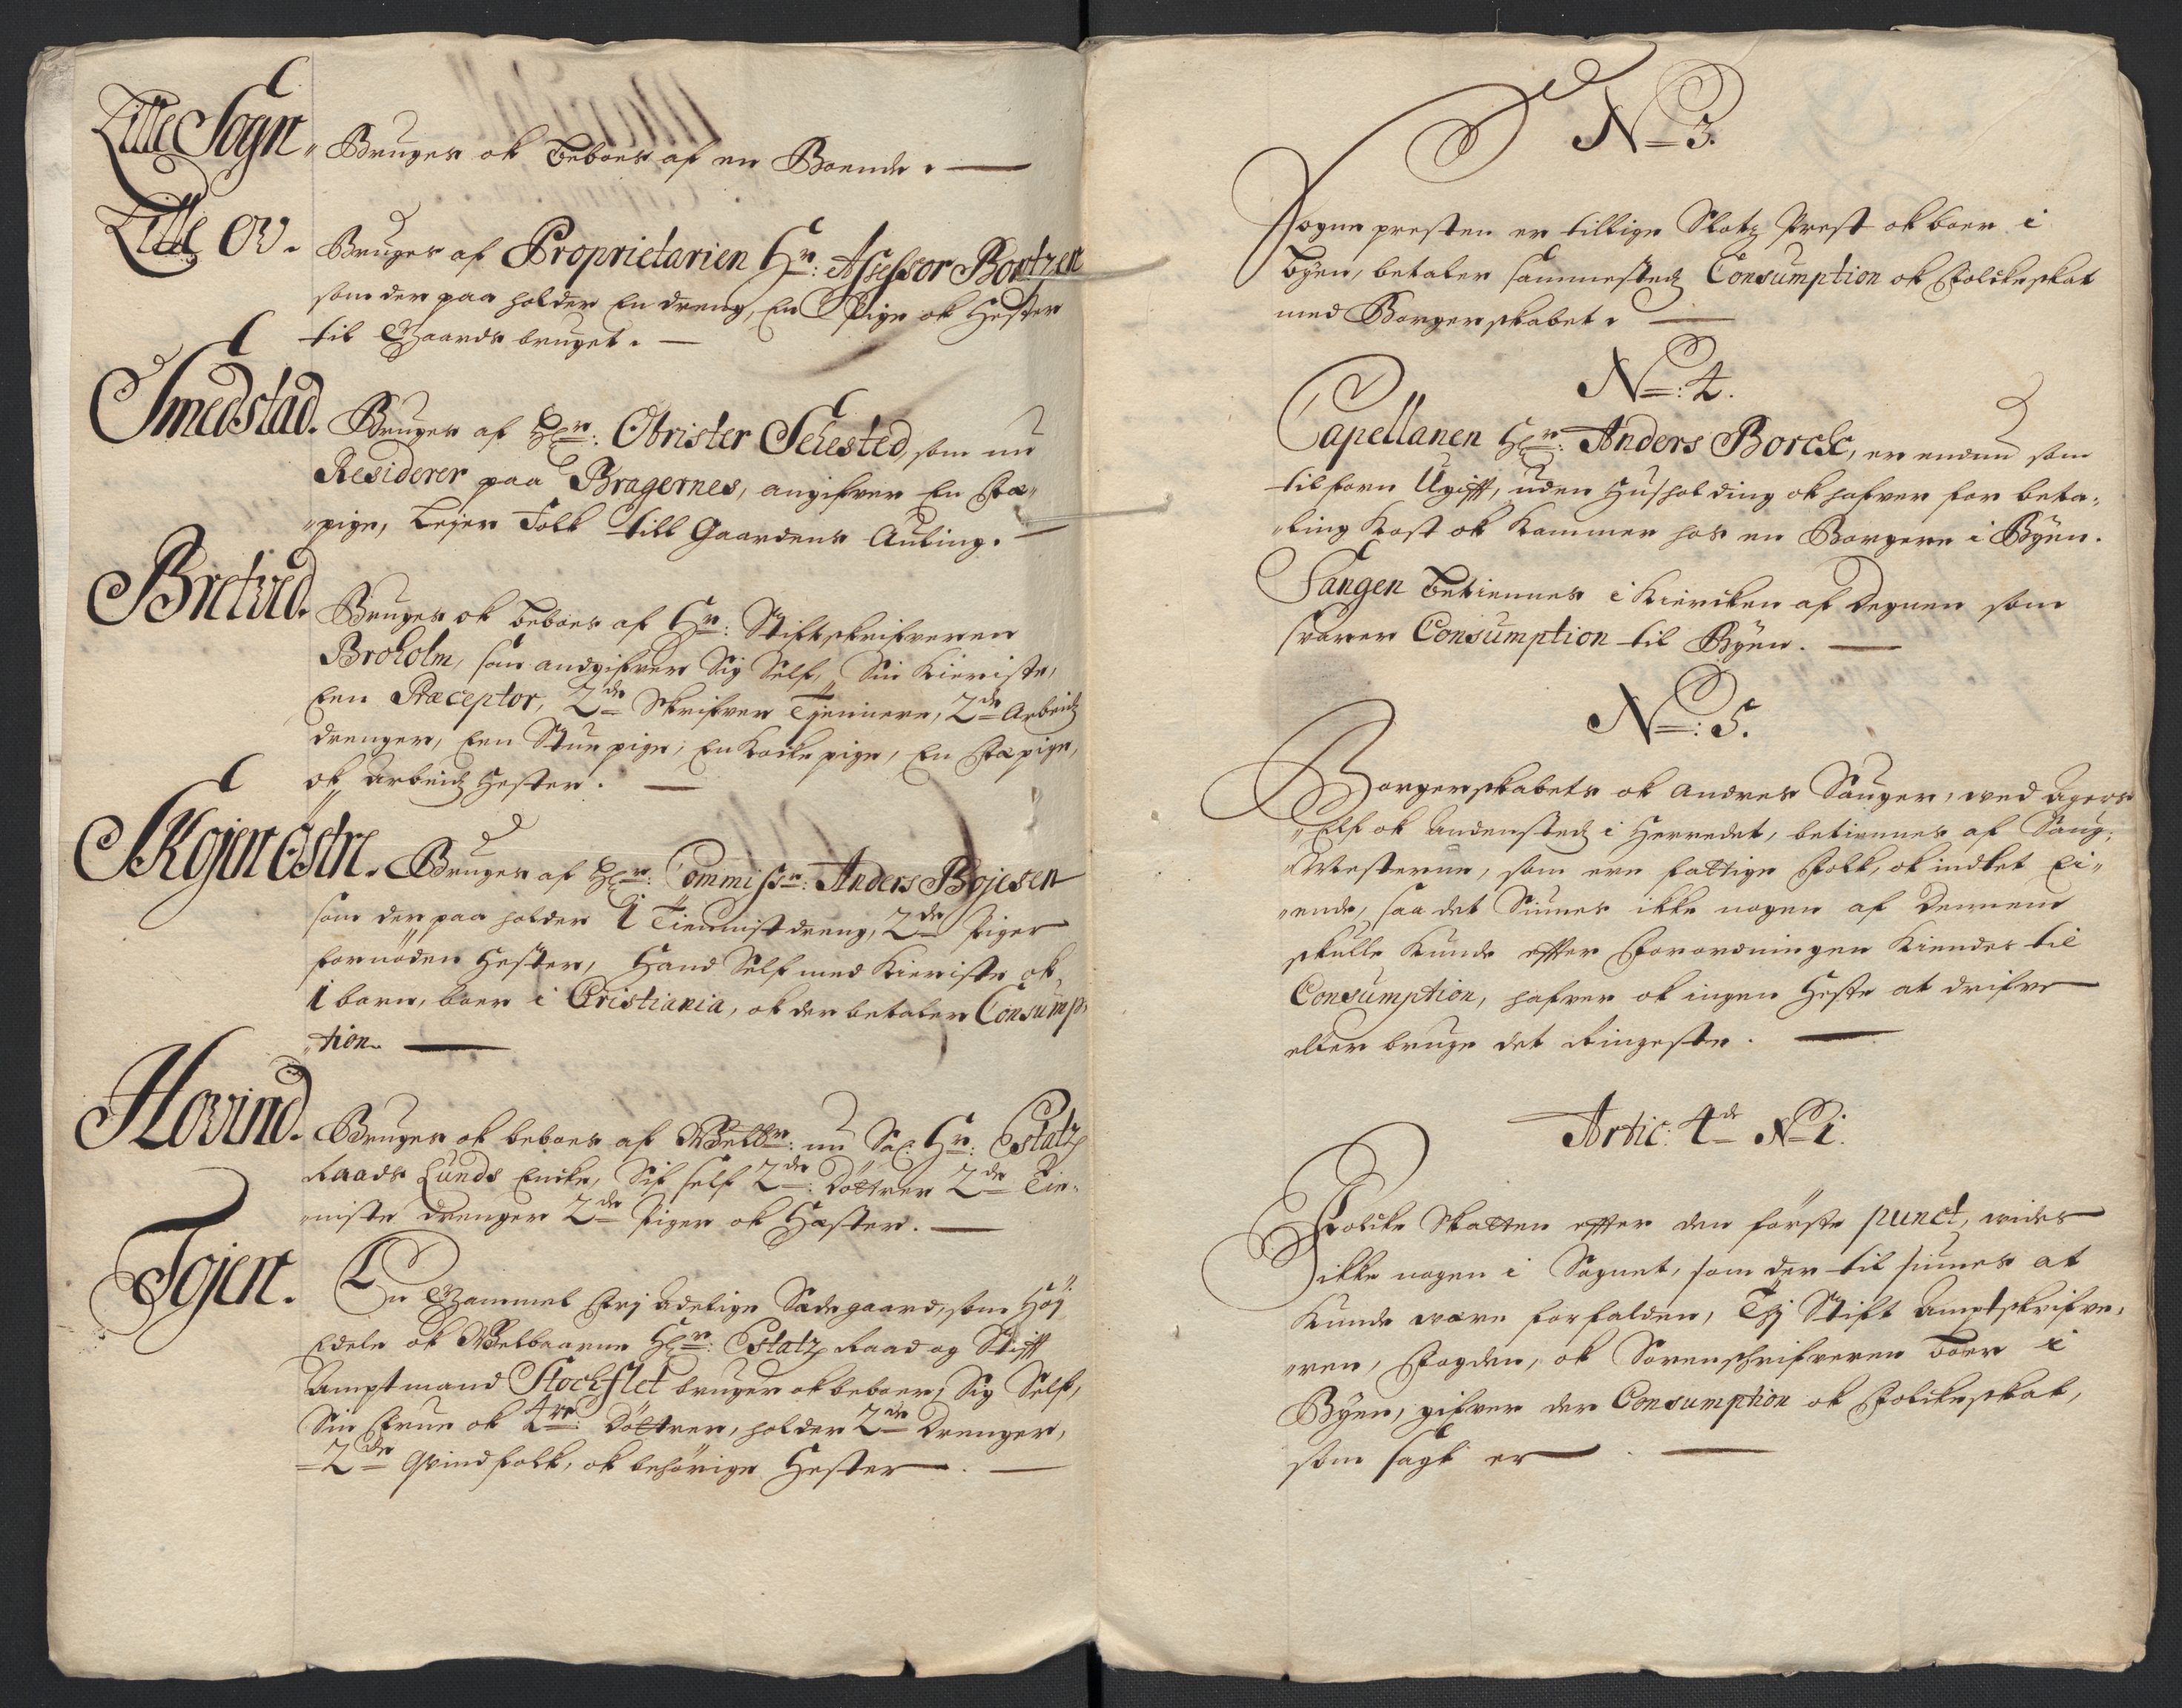 Lille Sogn „ Bruges ok beboes af en Boende. —
Lille Ow. Bruges af Proprietarien Hr: Assessor Bortzen
som der paa holder En dreng, En Pige ok Hester
til Gaards bruget. —
Smedstad. Bruges af Hr: Obrister Sehested, som nu
Residerer paa Bragernes, angifver En Fæ„
„pige, Lejer Folk till Gaardens Auling. —
Bretved. Bruges ok beboes af Hr: Stiftskrifveren
Broholm, som andgifver Sig Self, Sin Kieriste,
Een Præceptor, 2de Skrifver Tjennere, 2de Arbeidz
drenger, Een Stue pige, En Kocke pige, En Fæpige,
ok Arbeidz Hester. —
Skøjen Østre. Bruges af Hr: Commissr: Anders Bojesen
som der paa holder 1 Tiennist dreng, 2de Piger
fornøden Hester, Hand Self med Kieriste ok
1 barn, boer i Cristiania, ok der betaler Consump„
„tion. —
Hovind. Bruges ok beboes af Welbr: nu Sal: Hr: Estatz
Raads Lunds Encke, Sif self 2de: døttrer 2de Tie„
„niste drenger 2de Piger ok Hæster. —
Tøjen. En Gammel Frj Adelige Sædegaard, som Høj
Edele ok Welbaarne Hr: Estatz Raad og Stifft
Amptmand Stockflet bruger ok beboer, Sig Self,
Sin Frue ok 4re: døttrer, holder 2de Drenger,
2de Qvindfolk, ok behørige Hester. —
No 3.
Sogne presten er tillige Slotz Prest ok boer i
Byen, betaler sammestedz Consumption ok Folckeskat
med Borgerskabet. —
No: 4.
Capellanen Hr: Anders Borck, er endnu som
tilforn Ugifft, uden Husholding ok hafver for beta„
„ling Kost ok Kammer hos en Borgere i Byen.
Sangen betiennes i Kiercken af Degnen som
svarer Consumption til Byen. —
No: 5.
Borgerskabets ok andres Sauger, wed Agers
Elf ok Andenstedz i Herredet, betiennes af Saug„
„Mesterne, som ere fattige Folk, ok indtet Ei„
„ende, saa det Siunes ikke nogen af Dennem
skulle Kunde effter Forordningen Kiendes til
Consumption, hafver ok ingen Heste at drifve
eller bruge det Ringeste. —
Artic: 4de No 1.
Folcke Skatten effter den første punct, wides
ikke nogen i Sognet, som der til siunes at
Kunde være forfalden, Thj Stift Amptskrifve„
„ren, Fogden, ok Sorenskrifveren boer i
Byen, gifver der Consumption ok Folckeskat,
som sagt er —